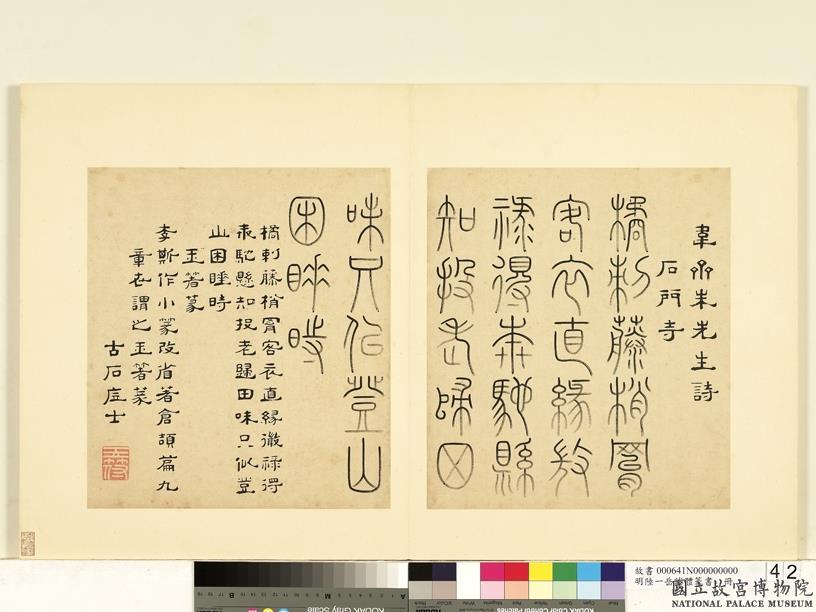 韋齋朱先生詩
石門寺
橘刺藤梢罥
客衣直緣微
祿得奔馳縣
知投老歸田
味只似登山
困睡時
橘刺藤梢罥客衣直緣微祿得
奔馳懸知投老歸田味只似登
山困睡時
玉箸篆
李斯作小篆改省著倉頡篇九
章世謂之玉箸篆
古石士
故書 000641N000000000
明陸一岳體篆書 冊
42
國立故宮博物院
NATIONAL PALACE MUSEUM